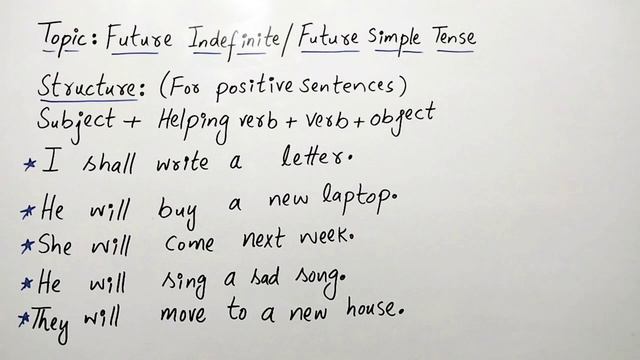 Topic: Future Indefinite/Future Simple Tense
Structure: (For positive sentences)
Subject + Helping verb + verb + object
* I shall write a letter.
* He will buy a new laptop.
* She will come next week.
* He will sing a sad song.
* They will move to a new house.